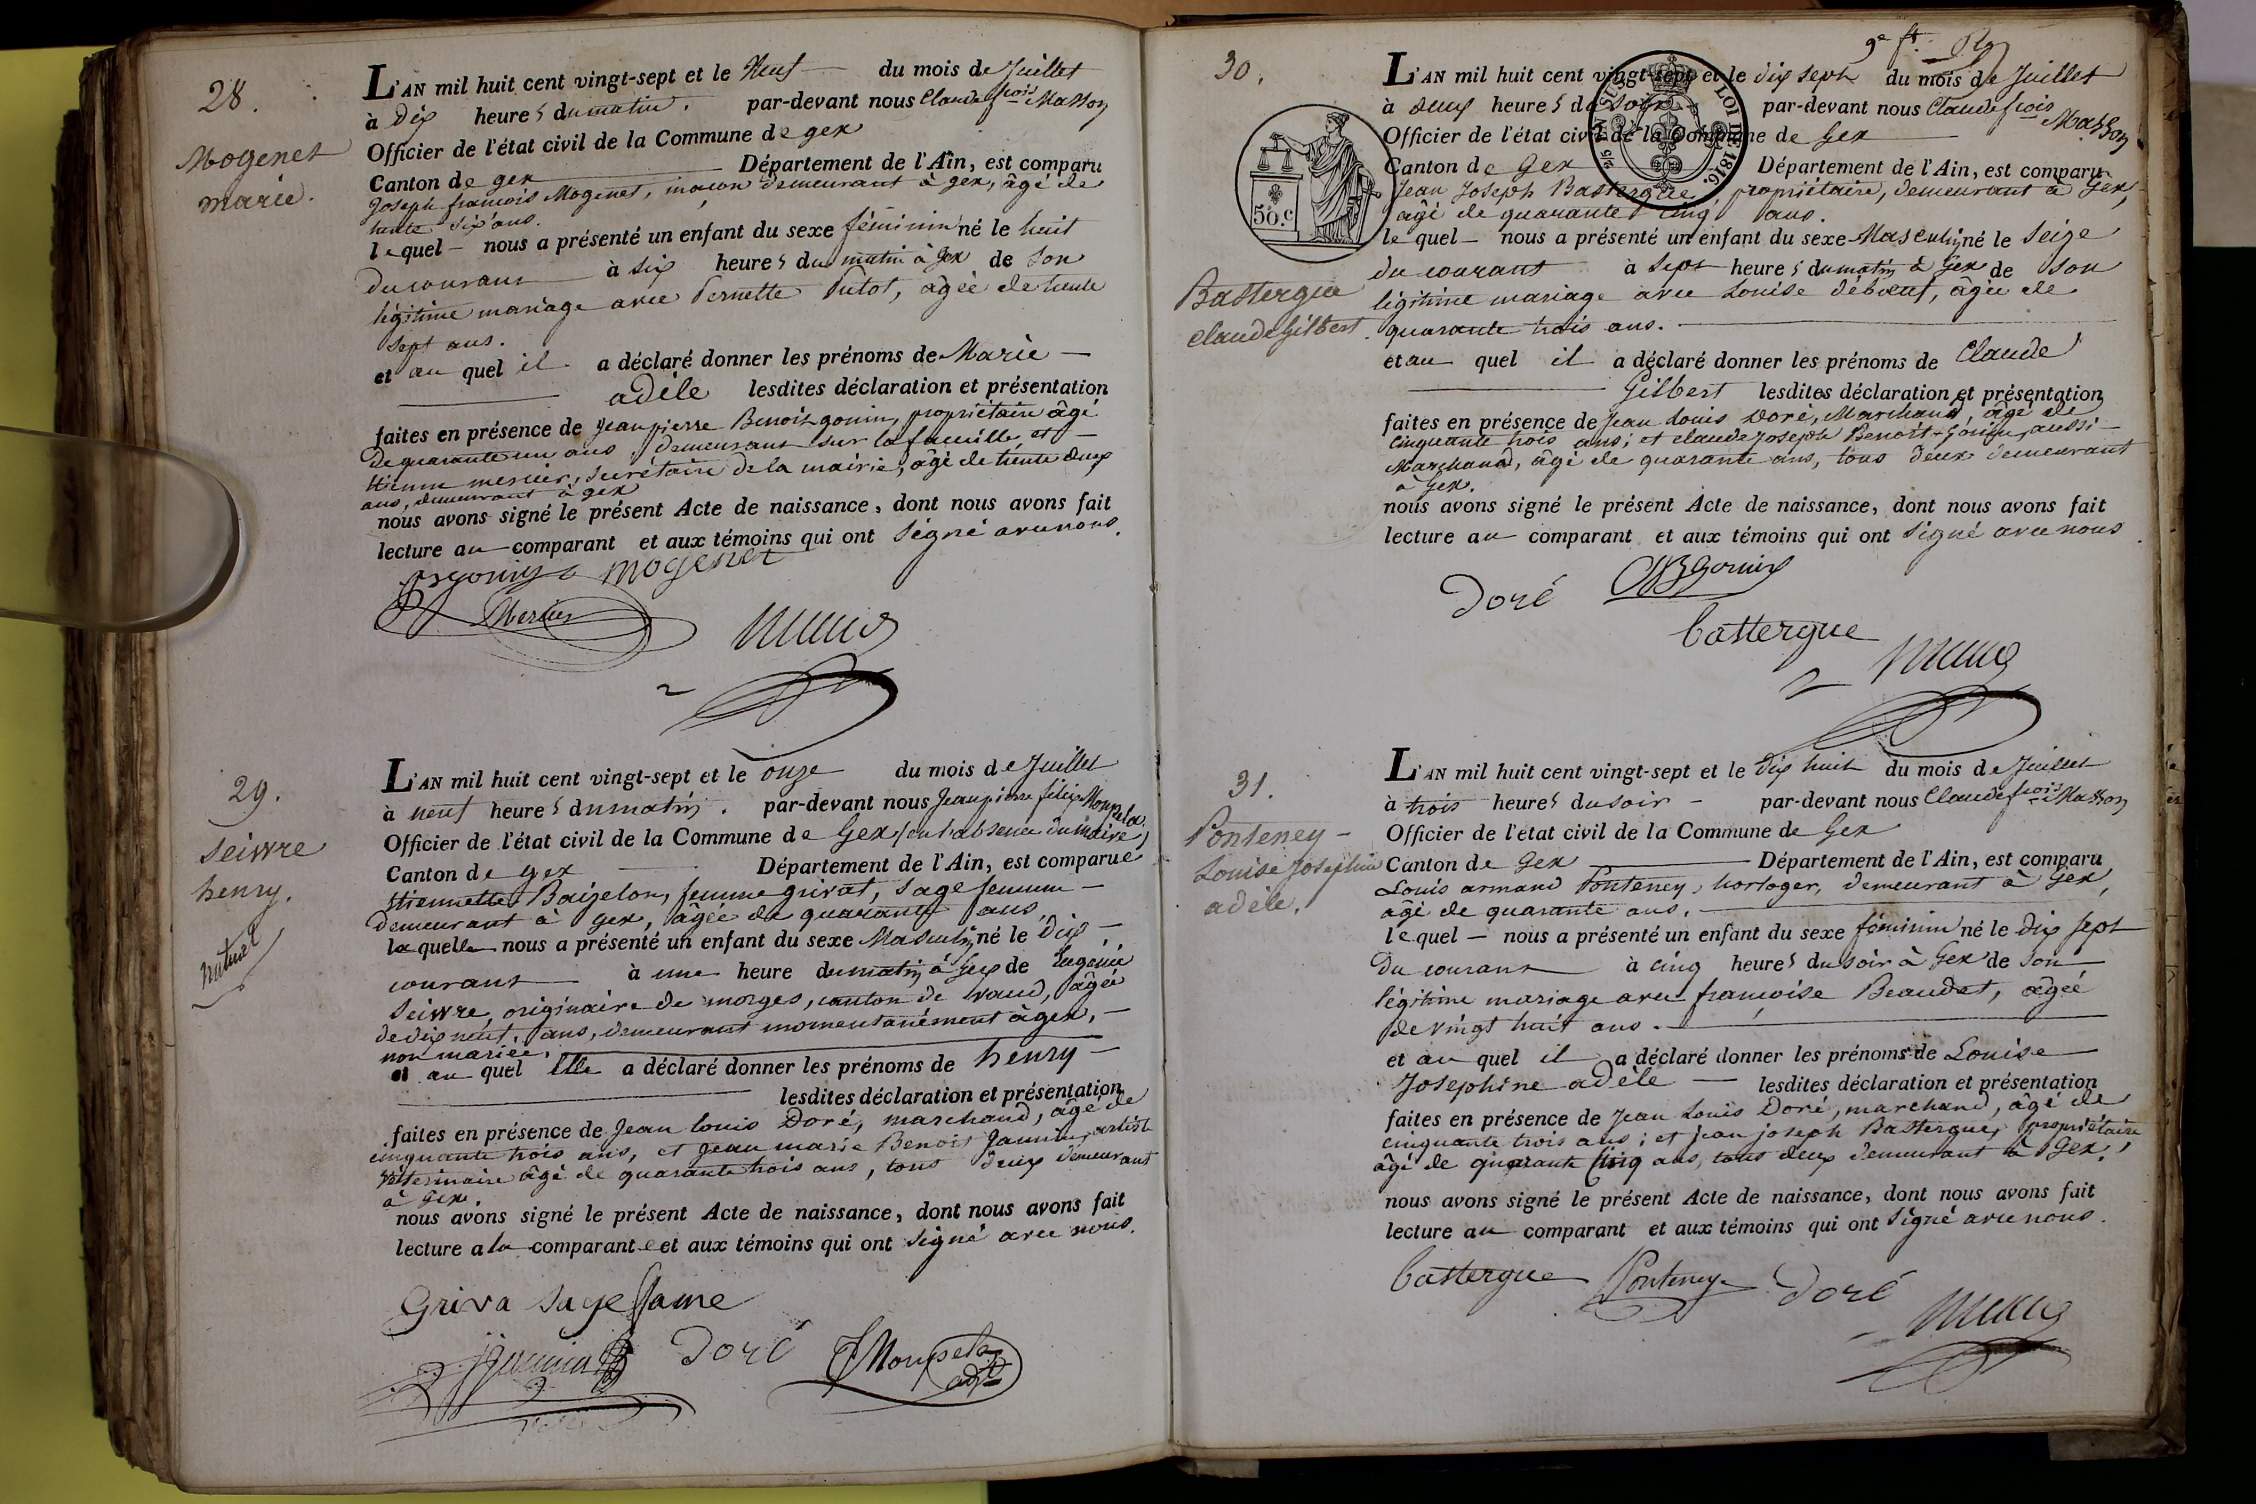 28.
Mogenet
marie.
L'AN mil huit cent vingt-sept et le Neuf du mois de Juillet
à dix heures du matin. par-devant nous Claude fçois Masson
Officier de l'état civil de la Commune de gex
Canton de gex Département de l'Ain, est comparu
Joseph françois Mogenet, maçon demeurant à gex, âgé de
trente six ans.
lequel nous a présenté un enfant du sexe féminin né le huit
du courant à six heures du matin à Gex de son
légitime mariage avec Pernette Futot, âgée de trente
sept ans.
et au quel il a déclaré donner les prénoms de Marie
adèle lesdites déclaration et présentation
faites en présence de Jean pierre Benoit gonin, propriétaire âgé
de quarante un ans, demeurant sur la faucille, et
Etienne mercier, secrétaire de la mairie, âgé de trente deux
ans, demeurant à gex
nous avons signé le présent Acte de naissance, dont nous avons fait
lecture au comparant et aux témoins qui ont signé avec nous.
mogenet
Mercier
29.
Seivvre
henry.
naturel
L'AN mil huit cent vingt-sept et le onze du mois de Juillet
à neuf heures du matin. par-devant nous Jean pierre félix Monpela
Officier de l'état civil de la Commune de Gex (en l'absence du maire)
Canton de gex Département de l'Ain, est comparue
Etiennette Baizelon, femme grivat, sage femme
demeurant à Gex, âgée de quarante ans
laquelle nous a présenté un enfant du sexe Masculin né le dix
courant à une heure du matin à Gex de Eugénie
Seivvre, originaire de morges, canton de vaud, âgée
de dix neuf ans, demeurant momentanément à gex,
non mariée.
et au quel Elle a déclaré donner les prénoms de henry
lesdites déclaration et présentation
faites en présence de Jean louis Doré, marchand, âgé de
cinquante trois ans, et Jean marie Benoit Jannin, artiste
vétérinaire âgé de quarante trois ans, tous deux demeurant
à Gex.
nous avons signé le présent Acte de naissance, dont nous avons fait
lecture a la comparante et aux témoins qui ont signé avec nous.
Griva sage fame
Doré
Monpela
adjt
30.
Bastergue
Claude Gilbert.
50.c
EN SUS
LOI DE 1816.
L'AN mil huit cent vingt-sept et le dix sept du mois de Juillet
à deux heures du soir par-devant nous Claude fçois Masson
Officier de l'état civil de la Commune de Gex
Canton de Gex Département de l'Ain, est comparu
Jean Joseph Bastergue, propriétaire, demeurant à Gex,
âgé de quarante cinq ans.
lequel nous a présenté un enfant du sexe Masculin né le seize
du courant à sept heures du matin à Gex de son
légitime mariage avec Louise Débœuf, âgée de
quarante trois ans.
et au quel il a déclaré donner les prénoms de Claude
Gilbert lesdites déclaration et présentation
faites en présence de Jean Louis Doré, Marchand, âgé de
cinquante trois ans; et claude Joseph Benoit-Gonin, aussi
Marchand, âgé de quarante ans, tous deux demeurant
à Gex.
nous avons signé le présent Acte de naissance, dont nous avons fait
lecture au comparant et aux témoins qui ont signé avec nous.
Doré
bastergue
31.
Ponteney
Louise Josephine
adèle.
L'AN mil huit cent vingt-sept et le dix huit du mois de Juillet
à trois heures du soir par-devant nous Claude fçois Masson
Officier de l'état civil de la Commune de Gex
Canton de Gex Département de l'Ain, est comparu
Louis armand Ponteney, horloger, demeurant à Gex,
âgé de quarante ans.
lequel nous a présenté un enfant du sexe féminin né le dix sept
du courant à cinq heures du soir à Gex de son
légitime mariage avec françoise Beaudet, âgée
de vingt huit ans.
et au quel il a déclaré donner les prénoms de Louise
Josephine adèle lesdites déclaration et présentation
faites en présence de Jean Louis Doré, marchand, âgé de
cinquante trois ans; et jean joseph Bastergue, propriétaire
âgé de quarante Cinq ans, tous deux demeurant à Gex.
nous avons signé le présent Acte de naissance, dont nous avons fait
lecture au comparant et aux témoins qui ont signé avec nous.
bastergue Ponteney Doré